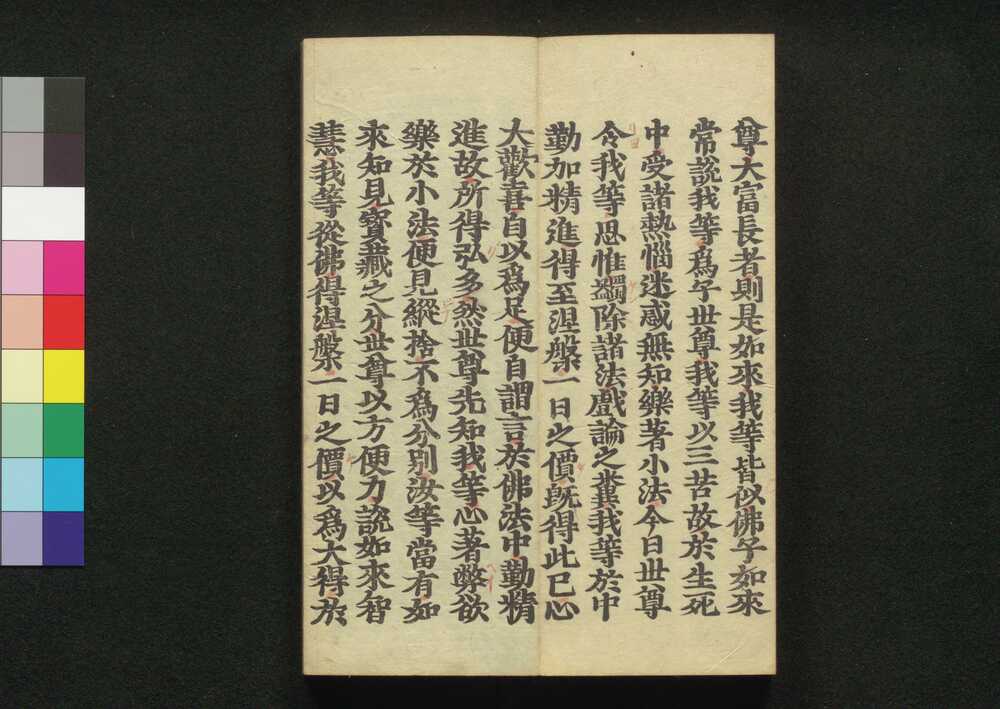 尊大富長者則是如來我等皆似佛子如來
常說我等爲子世尊我等以三苦故於生死
中受諸熱惱迷惑無知樂著小法今日世尊
令我等思惟蠲除諸法戲論之糞我等於中
勤加精進得至涅槃一日之價既得此已心
大歡喜自以爲足便自謂言於佛法中勤精
進故所得弘多然世尊先知我等心著弊欲
樂於小法便見縱捨不爲分別汝等當有如
來知見寶藏之分世尊以方便力說如來智
慧我等從佛得涅槃一日之價以爲大得於